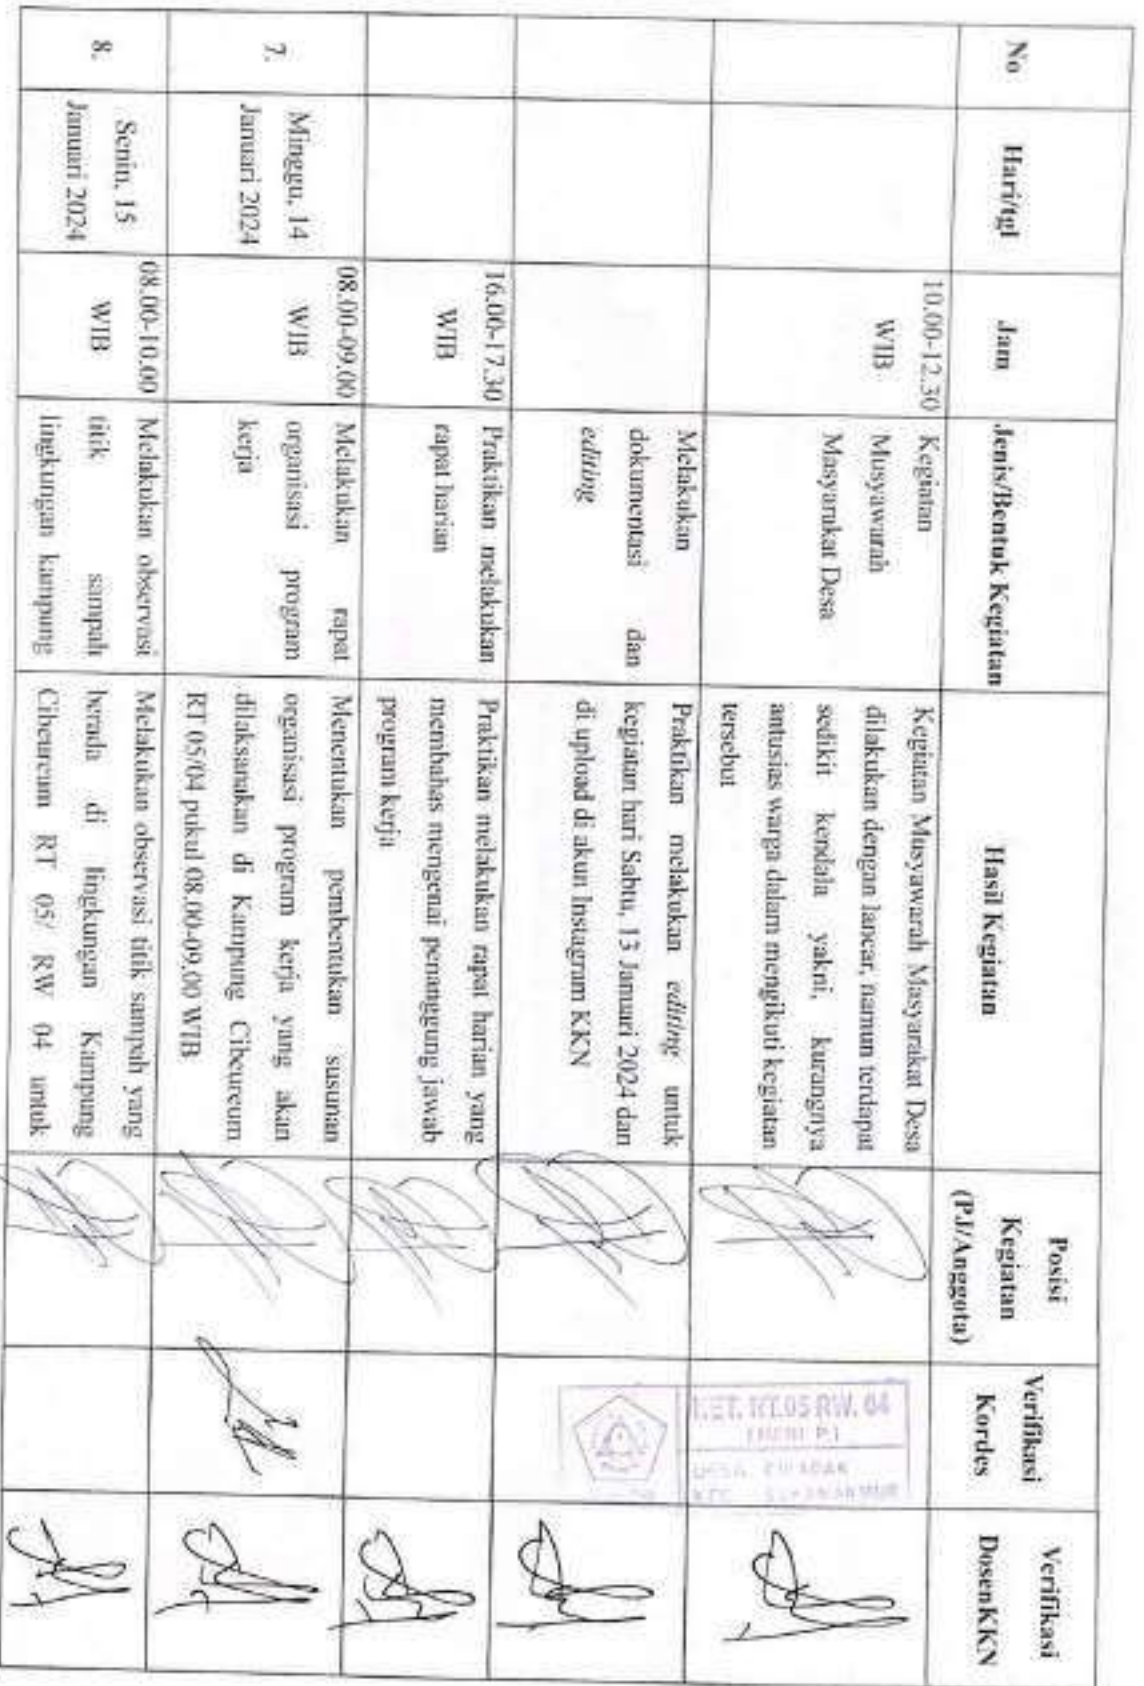 No
Hari/tgl
Jam
Jenis/Bentuk Kegiatan
Hasil Kegiatan
Posisi
Kegiatan
(PJ/Anggota)
Verifikasi
Kordes
Verifikasi
DosenKKN
10.00-12.30
WIB
Kegiatan
Musyawarah
Masyarakat Desa
Kegiatan Musyawarah Masyarakat Desa
dilakukan dengan lancar, namun terdapat
sedikit kendala yakni, kurangnya
antusias warga dalam mengikuti kegiatan
tersebut
KET. RT.05 RW. 04
DESA
KEC
Melakukan
dokumentasi dan
editing
Praktikan melakukan editing untuk
kegiatan hari Sabtu, 13 Januari 2024 dan
di upload di akun Instagram KKN
16.00-17.30
WIB
Praktikan melakukan
rapat harian
Praktikan melakukan rapat harian yang
membahas mengenai penanggung jawab
program kerja
7.
Minggu, 14
Januari 2024
08.00-09.00
WIB
Melakukan rapat
organisasi program
kerja
Menentukan pembentukan susunan
organisasi program kerja yang akan
dilaksanakan di Kampung Cibeureum
RT 05/04 pukul 08.00-09.00 WIB
8.
Senin, 15
Januari 2024
08.00-10.00
WIB
Melakukan observasi
titik sampah
lingkungan kampung
Melakukan observasi titik sampah yang
berada di lingkungan Kampung
Cibeureum RT 05/ RW 04 untuk